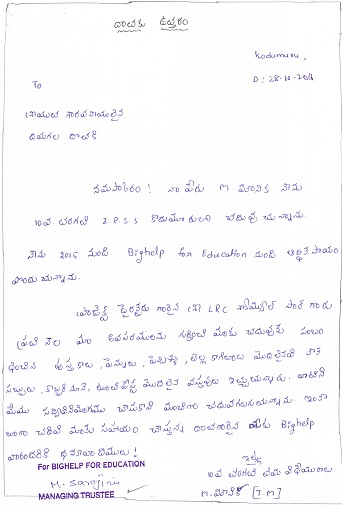 దాతకు ఉత్తరం
Kodumuru,
D: 28-10-2016
To
గౌరవనీయులైన
దయగల దాతకి
నమస్కారం! నా పేరు M. మౌనిక నేను
10వ తరగతి Z.P.S.S కొడుమూరులో చదువుచున్నాను.
నేను 2015 నుండి Bighelp for Education నుండి ఆర్థిక సాయం
పొందుచున్నాను.
ప్రాజెక్ట్ డైరెక్టర్ గారైన LRC సార్ గారు
ప్రతి నెల మా అవసరములను గుర్తించి మాకు చదువుకు సంబం
ధించిన పుస్తకాలు, పెన్నులు, పెన్సిళ్ళు, తెల్ల కాగితాలు మొదలైనవి
సబ్బులు, కొబ్బరి నూనె, మొదలైన వస్తువులు ఇచ్చుచున్నారు. వాటిని
మేము సద్వినియోగము చేసుకొని మంచిగా చదువగలుగుచున్నాము. ఇంకా
బాగా చదివి సహాయం చేస్తున్న దాతగారైన Bighelp
వారందరికి ధన్యవాదములు!
ఇట్లు
For BIGHELP FOR EDUCATION
10వ తరగతి విద్యార్థిని
M. Sarojini
M. మౌనిక [T.M]
MANAGING TRUSTEE